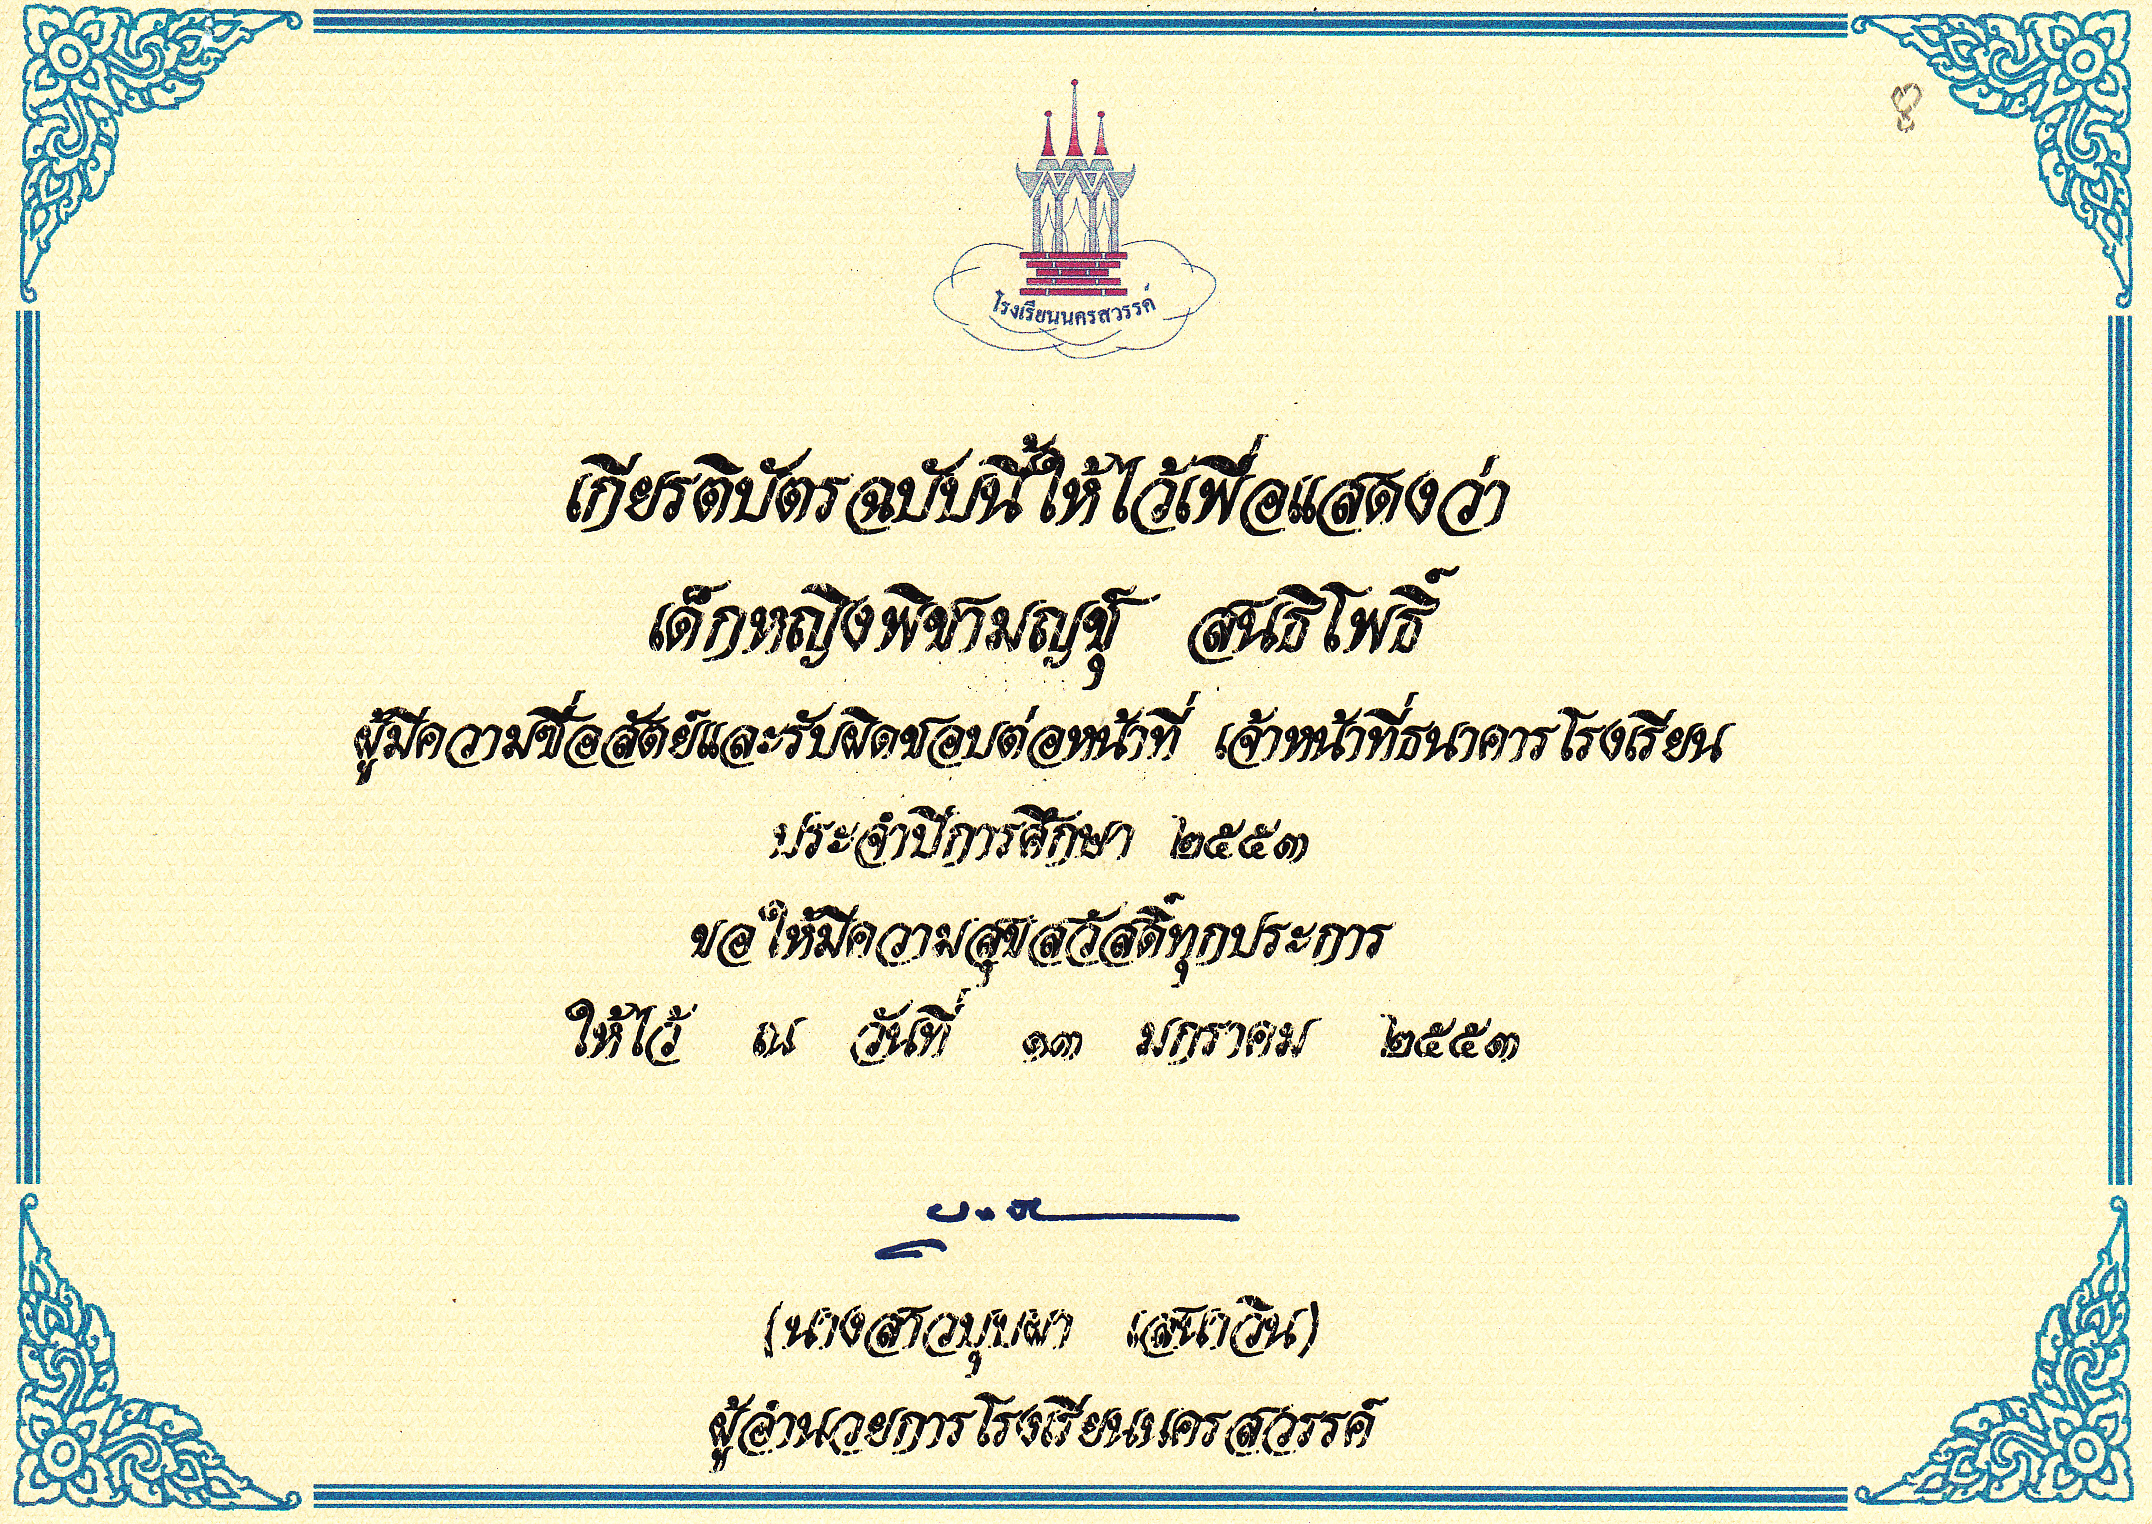 ๘
โรงเรียนนครสวรรค์
เกียรติบัตรฉบับนี้ให้ไว้เพื่อแสดงว่า
เด็กหญิงพิชามญชุ์ สนธิโพธิ์
ผู้มีความซื่อสัตย์และรับผิดชอบต่อหน้าที่ เจ้าหน้าที่ธนาคารโรงเรียน
ประจำปีการศึกษา ๒๕๕๓
ขอให้มีความสุขสวัสดิ์ทุกประการ
ให้ไว้ ณ วันที่ ๑๓ มกราคม ๒๕๕๓
(นางสาวบุบผา เสนาวิน)
ผู้อำนวยการโรงเรียนนครสวรรค์